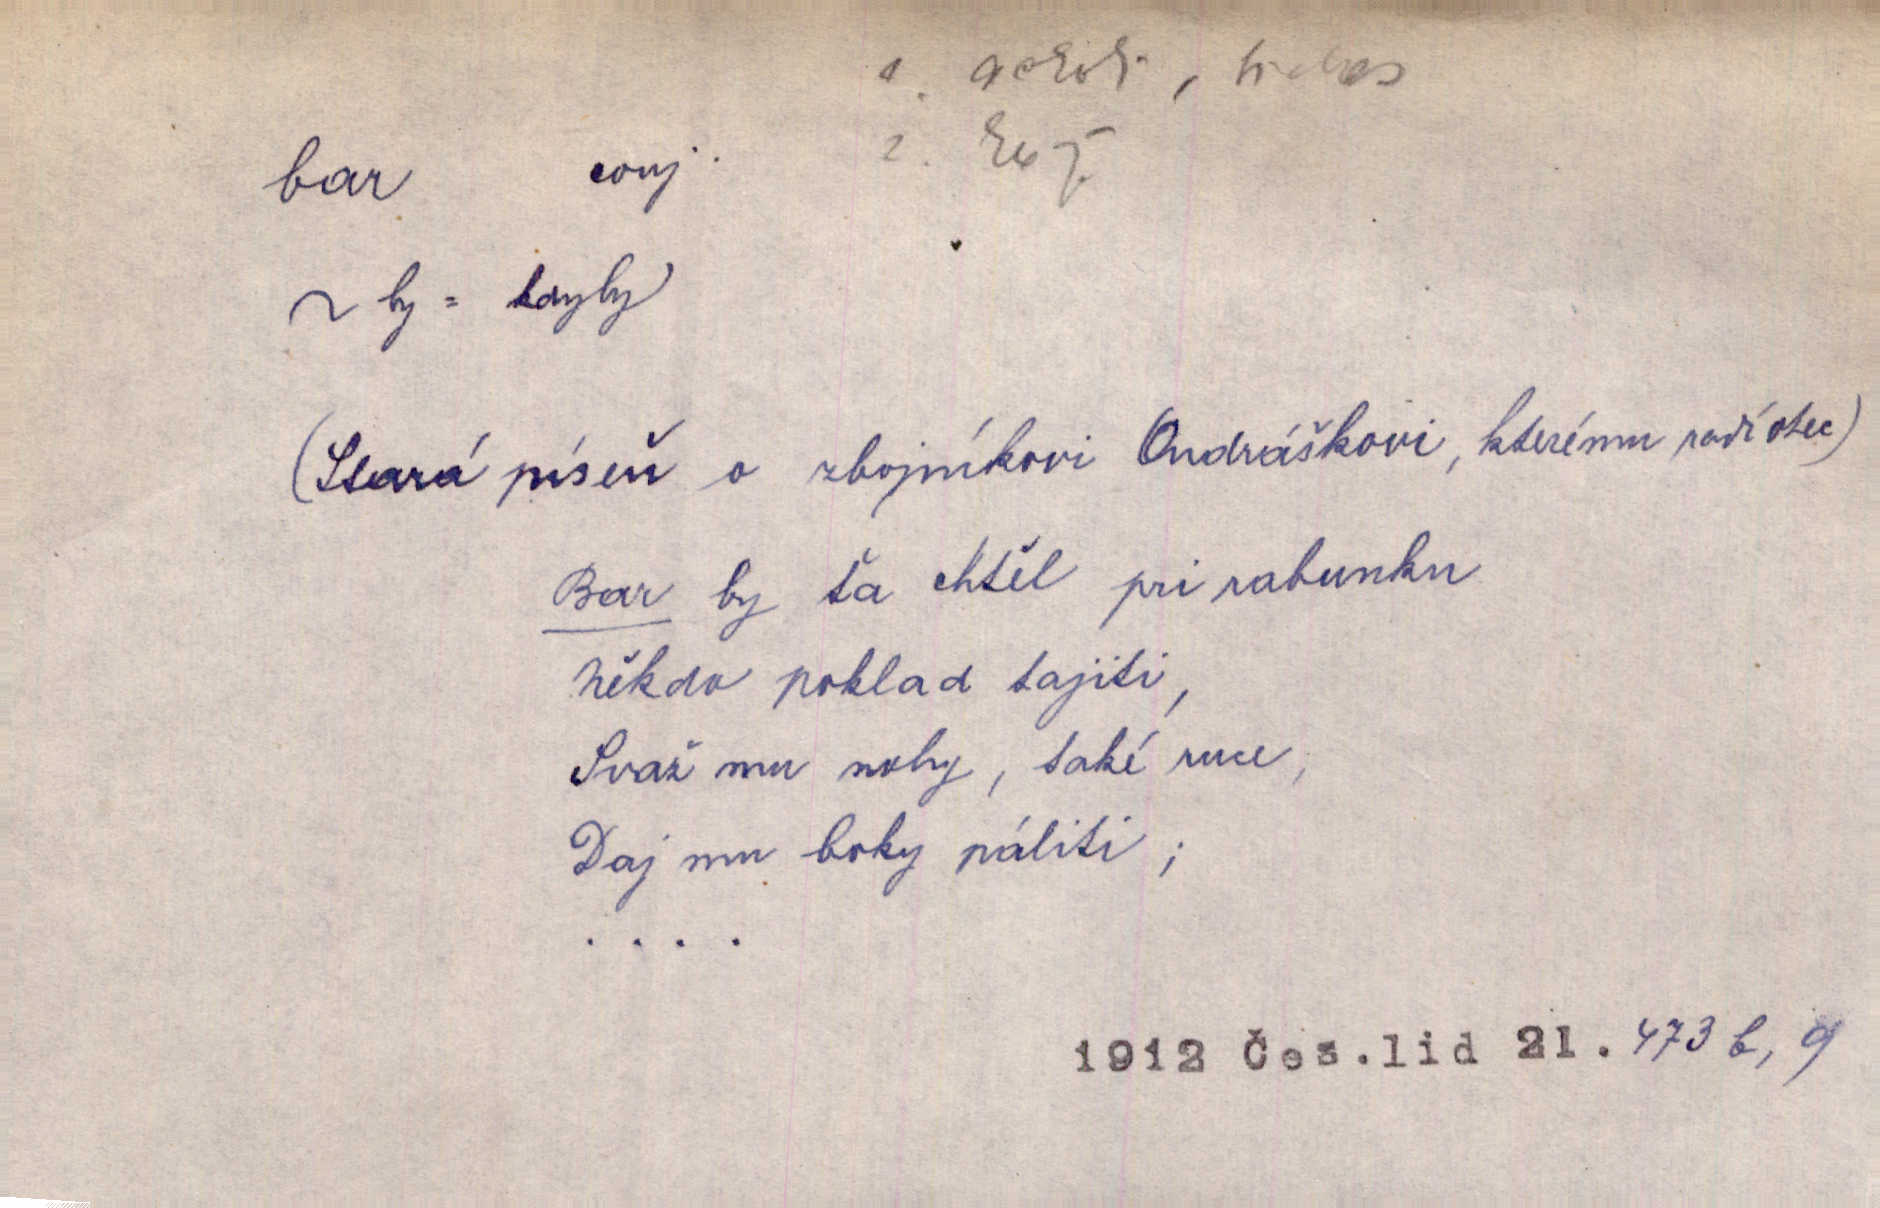 1. ačkoli, třebas
2. když
bar conj.
~ by = kdyby
(Stará píseň o zbojníkovi Ondráškovi, kterému radí otec)
Bar by ťa chtěl pri rabunku
Někdo poklad tajiti,
Svaž mu nohy, také ruce,
Daj mu boky páliti;
. . . .
1912 Čes.lid 21. 473 b, g